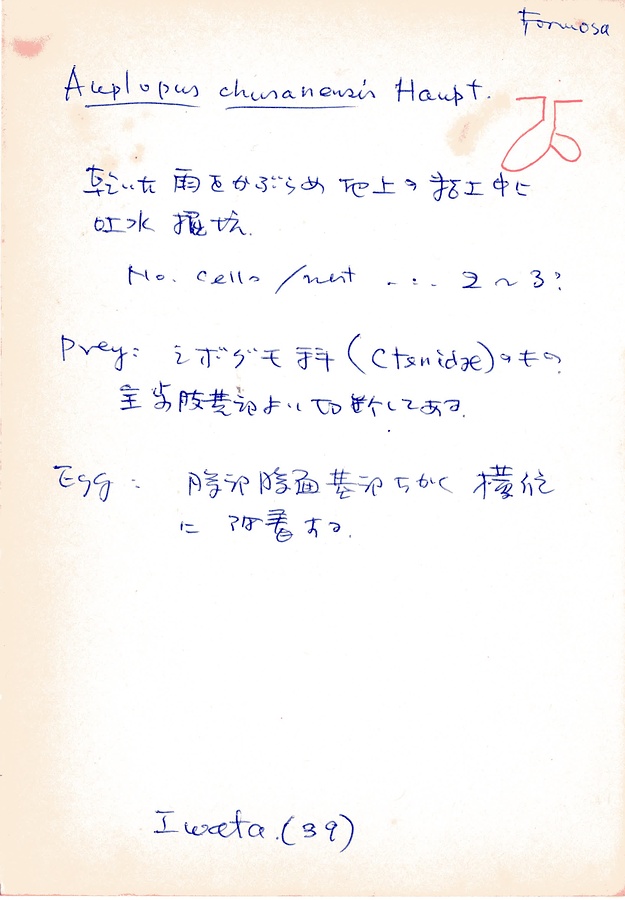 Formosa
Auplopus chusanensis Haupt.
乾いた 雨をかぶらぬ 地上の 粘土中に
吐水 掘坑.
No. cells / nest ... 2〜3?
Prey: シボグモ科 (Ctenidae) のもの
全歩肢基部より切断してある.
Egg: 腹部腹面基部ちかく 横位
に 附着する.
Iwata. (39)